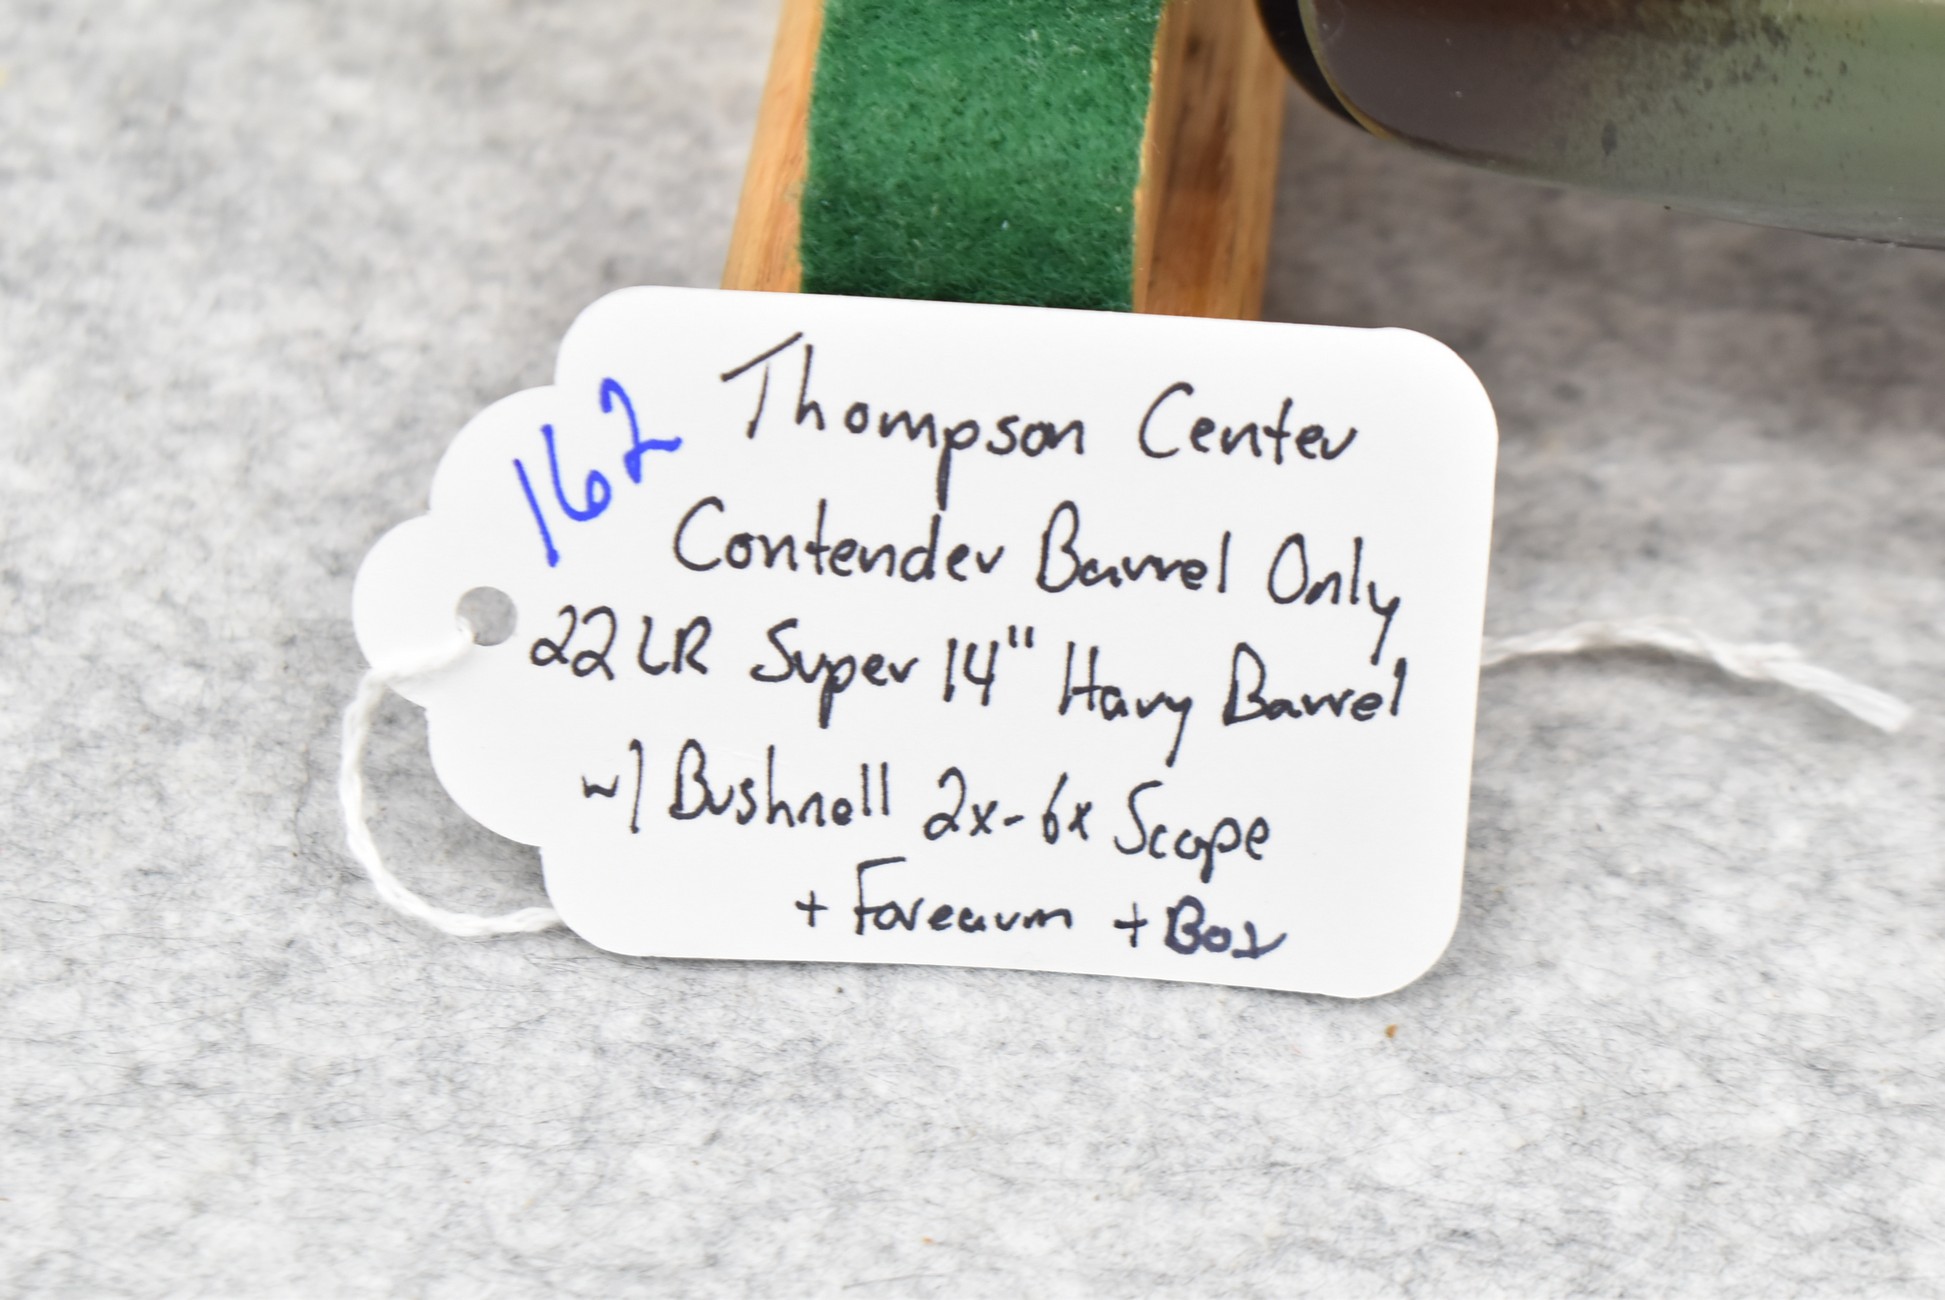 162
Thompson Center
Contender Barrel Only
22 LR Super 14" Havy Barrel
w/ Bushnell 2x-6x Scope
+ Forearm + Box